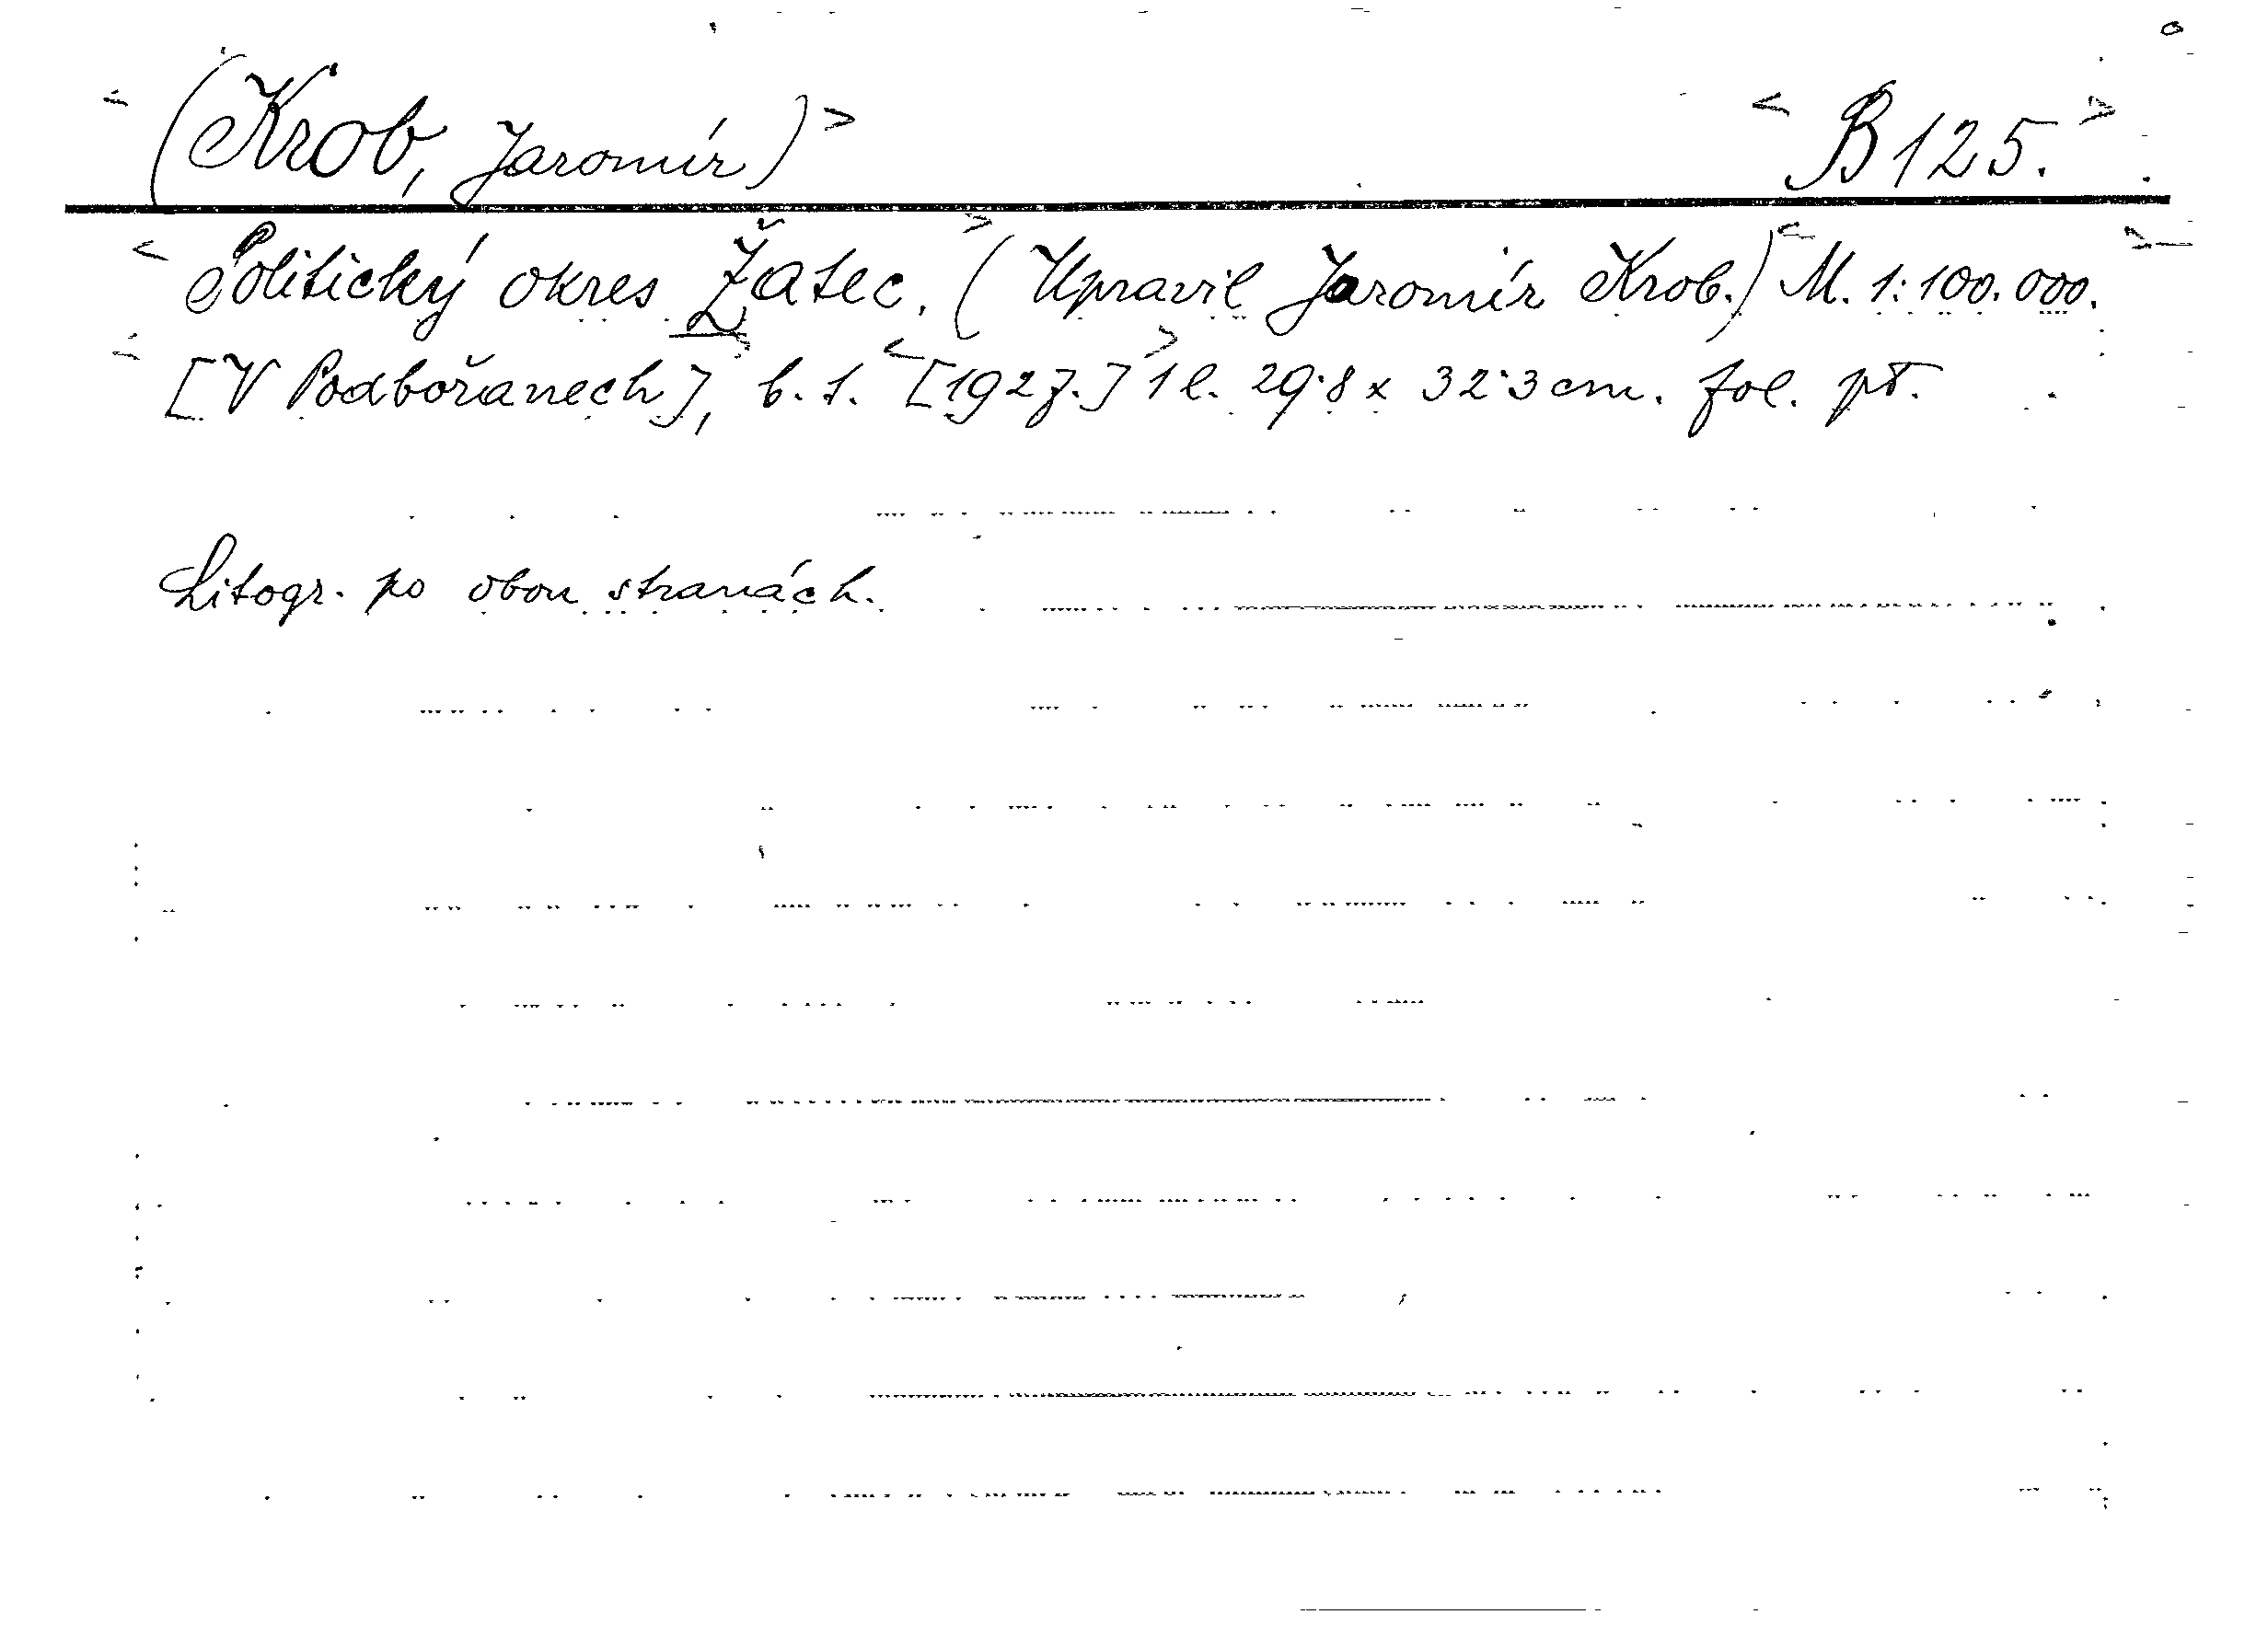 < (Krob, Jaromír) > < B 125. >
< Politický okres Žatec. > (Upravil Jaromír Krob.) < M. 1:100.000. >
< [V Podbořanech], > b. t. < [1927.] > 1 l. 29·8 x 32·3 cm. fol. př.
Litogr. po obou stranách.